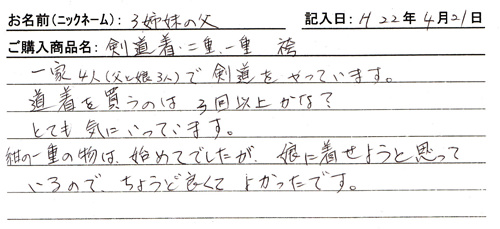 お名前(ニックネーム): 3姉妹の父 記入日: H22年4月21日
ご購入商品名: 剣道着・二重、一重 袴
一家4人(父と娘3人)で剣道をやっています。
道着を買うのは 3回以上かな?
とても気にいっています。
紺の一重の物は、始めてでしたが、娘に着せようと思って
いるので、ちょうど良くて よかったです。